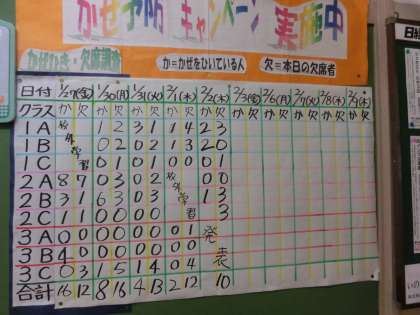 かぜ予防 キャンペーン 実施中
かぜひき・欠席調査 か=かぜをひいている人 欠=本日の欠席者
日付 1/27(金) 1/30(月) 1/31(火) 2/1(水) 2/2(木) 2/3(金) 2/6(月) 2/7(火) 2/8(水) 2/9(木)
クラス か 欠 か 欠 か 欠 か 欠 か 欠 か 欠 か 欠 か 欠 か 欠 か 欠
1A 校外学習 1 2 3 1 1 4 2 3
1B 0 2 0 2 1 3 2 0
1C 0 1 0 1 0 0 0 1
2A 8 7 0 3 0 2 校外学習 0 0
2B 3 1 6 3 0 3 1 3
2C 1 1 0 0 0 0 3
3A 0 0 0 0 0 0 0 1 発表
3B 4 0 0 0 0 0 0 0
3C 0 3 1 5 1 4 0 4
合計 16 12 8 16 4 13 2 12 10